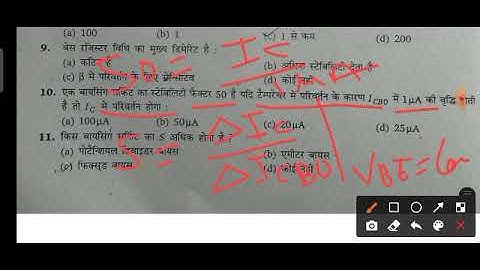 (a) 100 (b) 1 (c) 1 से कम (d) 200
9. बेस रजिस्टर विधि का मुख्य डिमेरिट है :
(a) कठिन है (b) अधिक स्टेबिलिटी देता है
(c) β में परिवर्तन के लिए सेन्सिटिव (d) कोई नहीं
10. एक बायसिंग सर्किट का स्टेबिलिटी फैक्टर 50 है यदि टैम्परेचर में परिवर्तन के कारण ICBO में 1μA की वृद्धि होती
है तो IC में परिवर्तन होगा :
(a) 100μA (b) 50μA (c) 20μA (d) 25μA
11. किस बायसिंग सर्किट का S अधिक होता है ?
(a) पोटेन्शियल डिवाइडर बायस (b) एमीटर बायस
(c) फिक्स्ड बायस (d) कोई नहीं
IC
50 =
S = ΔIC
ΔICBO
VBE = 6